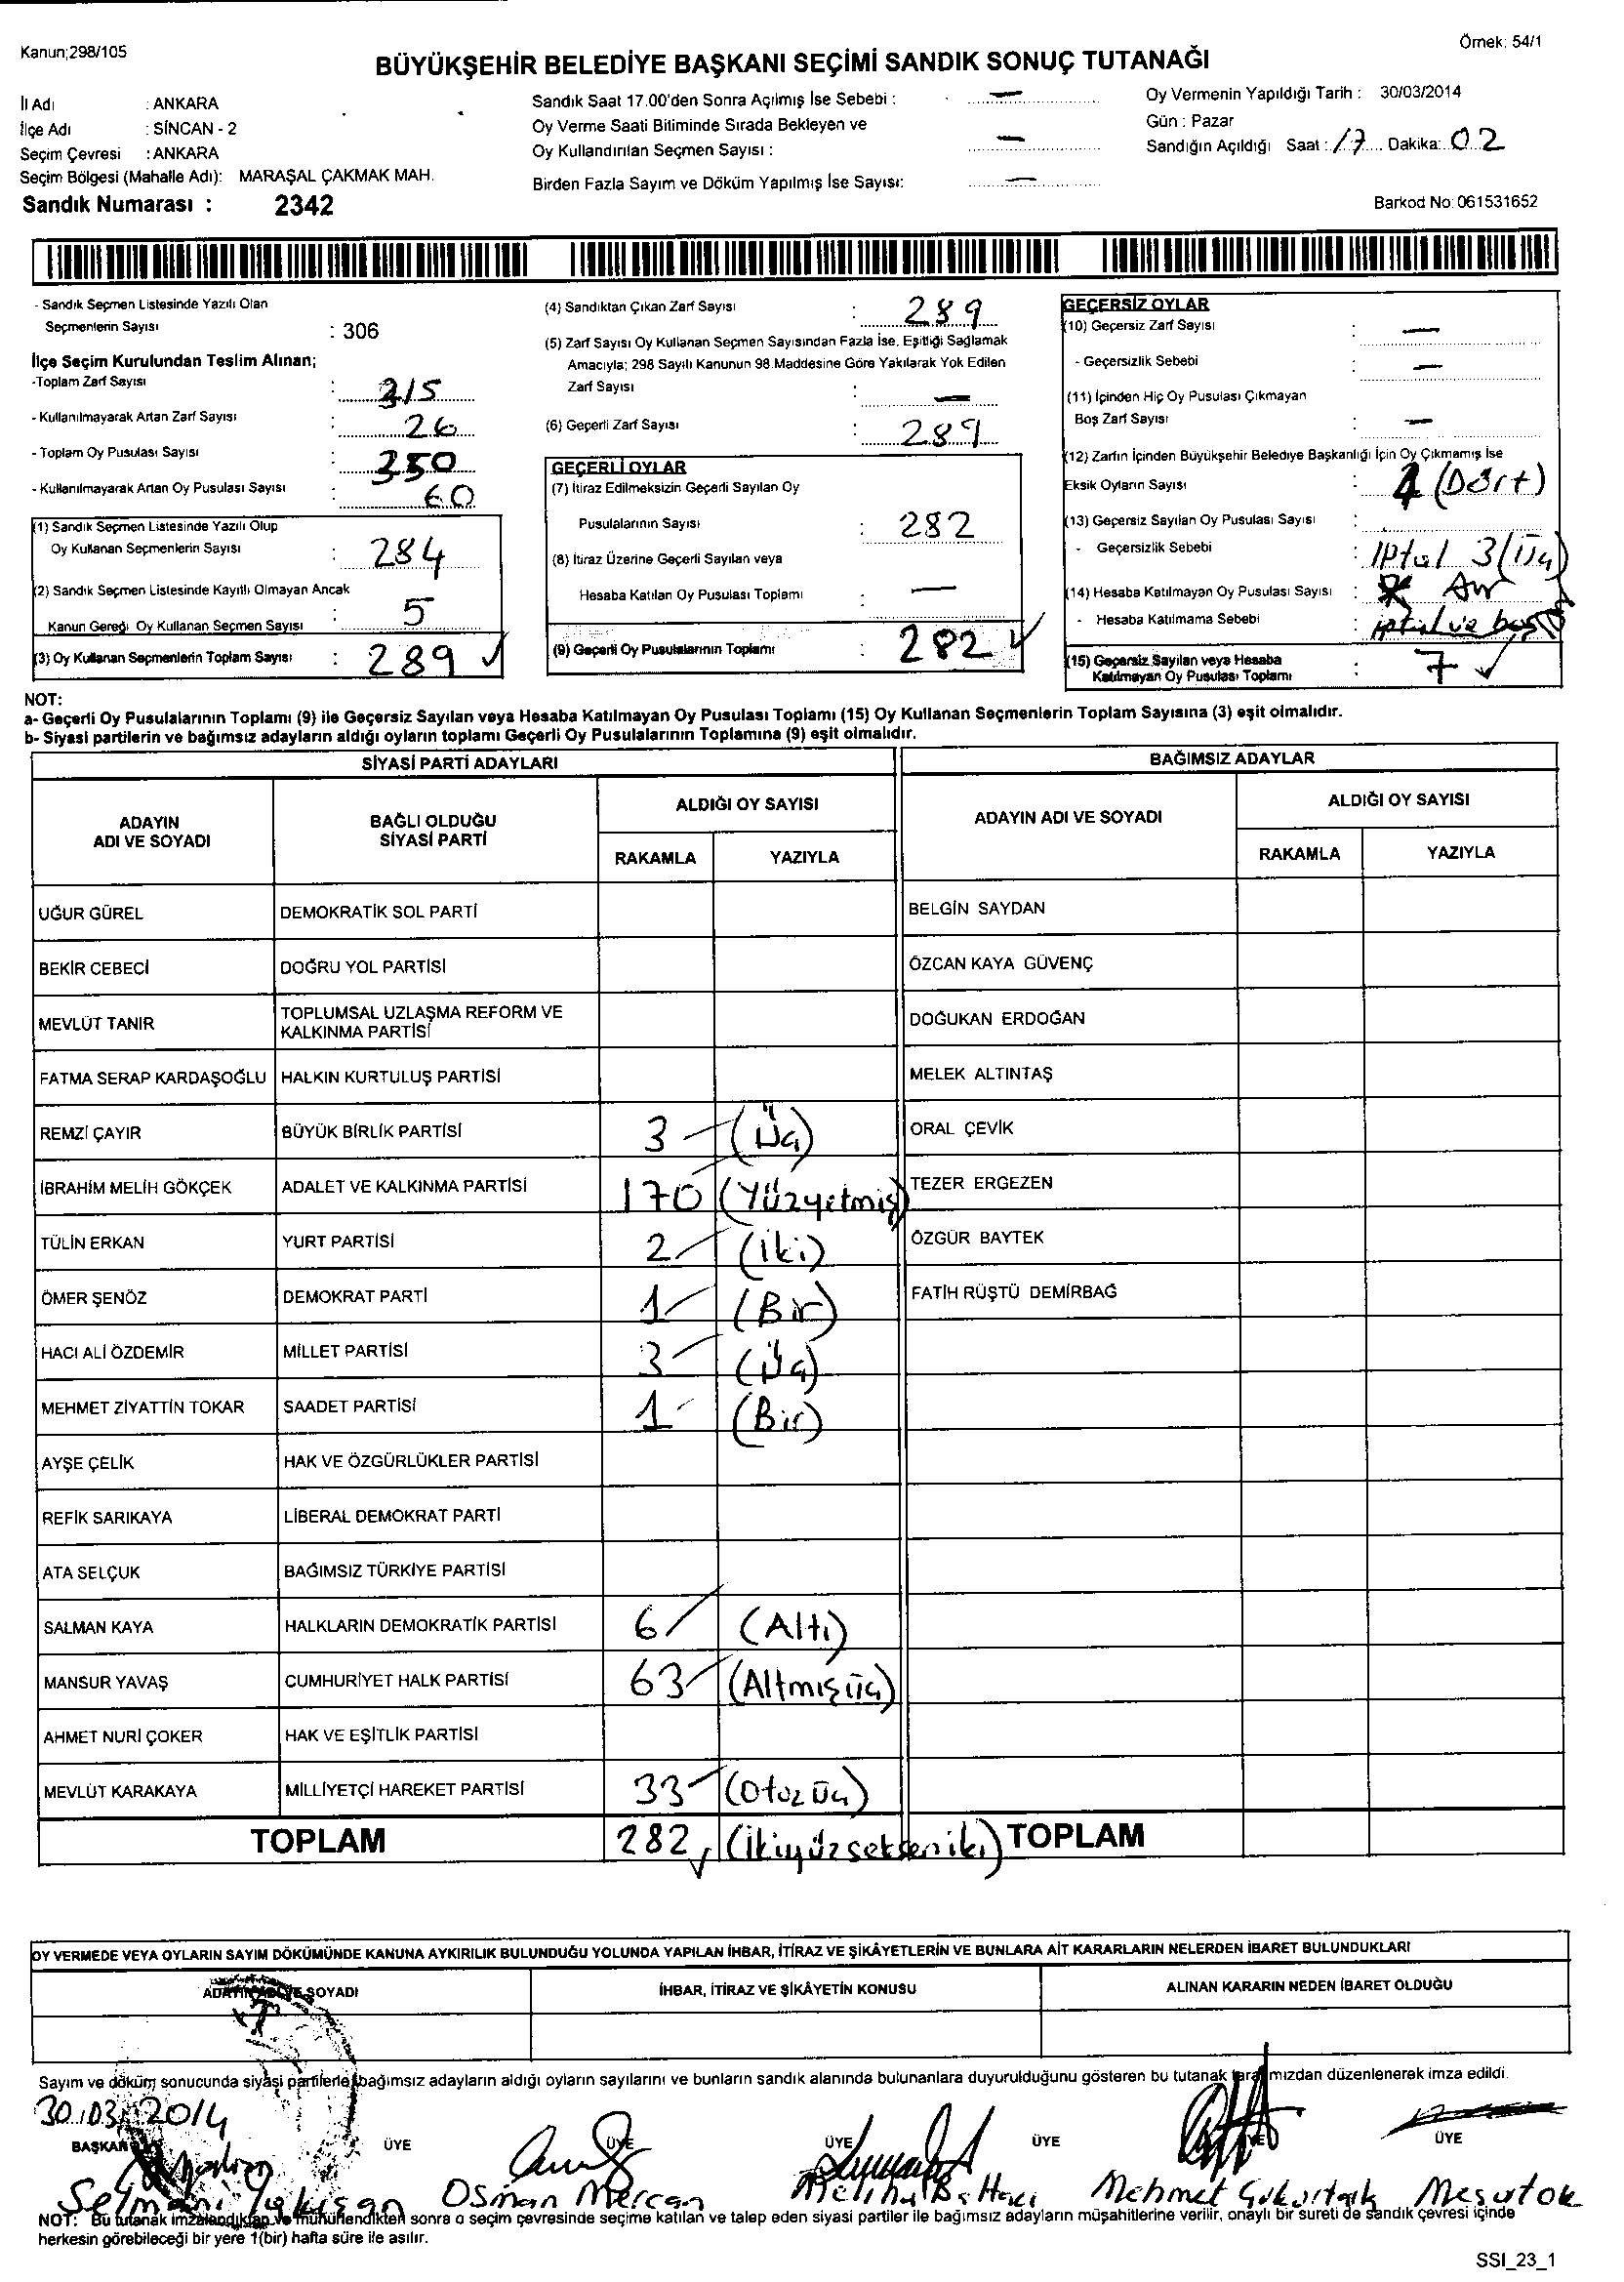 Kanun;298/105
Örnek: 54/1
BÜYÜKŞEHİR BELEDİYE BAŞKANI SEÇİMİ SANDIK SONUÇ TUTANAĞI
İl Adı : ANKARA
İlçe Adı : SİNCAN - 2
Seçim Çevresi : ANKARA
Seçim Bölgesi (Mahalle Adı): MARAŞAL ÇAKMAK MAH.
Sandık Numarası : 2342
Sandık Saat 17.00'den Sonra Açılmış İse Sebebi : —
Oy Verme Saati Bitiminde Sırada Bekleyen ve
Oy Kullandırılan Seçmen Sayısı : —
Birden Fazla Sayım ve Döküm Yapılmış İse Sayısı: —
Oy Vermenin Yapıldığı Tarih : 30/03/2014
Gün : Pazar
Sandığın Açıldığı Saat : 17 Dakika: 02
Barkod No: 061531652
- Sandık Seçmen Listesinde Yazılı Olan
Seçmenlerin Sayısı : 306
İlçe Seçim Kurulundan Teslim Alınan;
-Toplam Zarf Sayısı : 315
- Kullanılmayarak Artan Zarf Sayısı : 26
- Toplam Oy Pusulası Sayısı : 350
- Kullanılmayarak Artan Oy Pusulası Sayısı : 60
(1) Sandık Seçmen Listesinde Yazılı Olup
Oy Kullanan Seçmenlerin Sayısı : 284
(2) Sandık Seçmen Listesinde Kayıtlı Olmayan Ancak
Kanun Gereği Oy Kullanan Seçmen Sayısı : 5
(3) Oy Kullanan Seçmenlerin Toplam Sayısı : 289
(4) Sandıktan Çıkan Zarf Sayısı : 289
(5) Zarf Sayısı Oy Kullanan Seçmen Sayısından Fazla İse, Eşitliği Sağlamak
Amacıyla; 298 Sayılı Kanunun 98.Maddesine Göre Yakılarak Yok Edilen
Zarf Sayısı : —
(6) Geçerli Zarf Sayısı : 289
GEÇERLİ OYLAR
(7) İtiraz Edilmeksizin Geçerli Sayılan Oy
Pusulalarının Sayısı : 282
(8) İtiraz Üzerine Geçerli Sayılan veya
Hesaba Katılan Oy Pusulası Toplamı : —
(9) Geçerli Oy Pusulalarının Toplamı : 282
GEÇERSİZ OYLAR
(10) Geçersiz Zarf Sayısı : —
- Geçersizlik Sebebi : —
(11) İçinden Hiç Oy Pusulası Çıkmayan
Boş Zarf Sayısı : —
(12) Zarfın İçinden Büyükşehir Belediye Başkanlığı İçin Oy Çıkmamış İse
Eksik Oyların Sayısı : 4 (Dört)
(13) Geçersiz Sayılan Oy Pusulası Sayısı :
- Geçersizlik Sebebi : İptal 3 (Üç)
(14) Hesaba Katılmayan Oy Pusulası Sayısı :
- Hesaba Katılmama Sebebi : iptal ve boş
(15) Geçersiz Sayılan veya Hesaba
Katılmayan Oy Pusulası Toplamı : 7
NOT:
a- Geçerli Oy Pusulalarının Toplamı (9) ile Geçersiz Sayılan veya Hesaba Katılmayan Oy Pusulası Toplamı (15) Oy Kullanan Seçmenlerin Toplam Sayısına (3) eşit olmalıdır.
b- Siyasi partilerin ve bağımsız adayların aldığı oyların toplamı Geçerli Oy Pusulalarının Toplamına (9) eşit olmalıdır.
SİYASİ PARTİ ADAYLARI
BAĞIMSIZ ADAYLAR
ADAYIN ADI VE SOYADI
BAĞLI OLDUĞU SİYASİ PARTİ
ALDIĞI OY SAYISI
RAKAMLA YAZIYLA
ADAYIN ADI VE SOYADI
ALDIĞI OY SAYISI
RAKAMLA YAZIYLA
UĞUR GÜREL DEMOKRATİK SOL PARTİ BELGİN SAYDAN
BEKİR CEBECİ DOĞRU YOL PARTİSİ ÖZCAN KAYA GÜVENÇ
MEVLÜT TANIR TOPLUMSAL UZLAŞMA REFORM VE KALKINMA PARTİSİ DOĞUKAN ERDOĞAN
FATMA SERAP KARDAŞOĞLU HALKIN KURTULUŞ PARTİSİ MELEK ALTINTAŞ
REMZİ ÇAYIR BÜYÜK BİRLİK PARTİSİ 3 (Üç) ORAL ÇEVİK
İBRAHİM MELİH GÖKÇEK ADALET VE KALKINMA PARTİSİ 170 (Yüzyetmiş) TEZER ERGEZEN
TÜLİN ERKAN YURT PARTİSİ 2 (İki) ÖZGÜR BAYTEK
ÖMER ŞENÖZ DEMOKRAT PARTİ 1 (Bir) FATİH RÜŞTÜ DEMİRBAĞ
HACI ALİ ÖZDEMİR MİLLET PARTİSİ 3 (Üç)
MEHMET ZİYATTİN TOKAR SAADET PARTİSİ 1 (Bir)
AYŞE ÇELİK HAK VE ÖZGÜRLÜKLER PARTİSİ
REFİK SARIKAYA LİBERAL DEMOKRAT PARTİ
ATA SELÇUK BAĞIMSIZ TÜRKİYE PARTİSİ
SALMAN KAYA HALKLARIN DEMOKRATİK PARTİSİ 6 (Altı)
MANSUR YAVAŞ CUMHURİYET HALK PARTİSİ 63 (Altmışüç)
AHMET NURİ ÇOKER HAK VE EŞİTLİK PARTİSİ
MEVLÜT KARAKAYA MİLLİYETÇİ HAREKET PARTİSİ 33 (Otuz Üç)
TOPLAM 282 (İkiyüzsekseniki) TOPLAM
OY VERMEDE VEYA OYLARIN SAYIM DÖKÜMÜNDE KANUNA AYKIRILIK BULUNDUĞU YOLUNDA YAPILAN İHBAR, İTİRAZ VE ŞİKÂYETLERİN VE BUNLARA AİT KARARLARIN NELERDEN İBARET BULUNDUKLARI
ADAYIN ADI VE SOYADI İHBAR, İTİRAZ VE ŞİKÂYETİN KONUSU ALINAN KARARIN NEDEN İBARET OLDUĞU
Sayım ve döküm sonucunda siyasi partilerle bağımsız adayların aldığı oyların sayılarını ve bunların sandık alanında bulunanlara duyurulduğunu gösteren bu tutanak tarafımızdan düzenlenerek imza edildi.
30.03.2014
BAŞKAN ÜYE ÜYE ÜYE ÜYE ÜYE
Selmani Osman Mercan Mehmet Mesut ok
NOT: Bu tutanak imzalandıktan ve mühürlendikten sonra o seçim çevresinde seçime katılan ve talep eden siyasi partiler ile bağımsız adayların müşahitlerine verilir, onaylı bir sureti de sandık çevresi içinde
herkesin görebileceği bir yere 1(bir) hafta süre ile asılır.
SSI_23_1